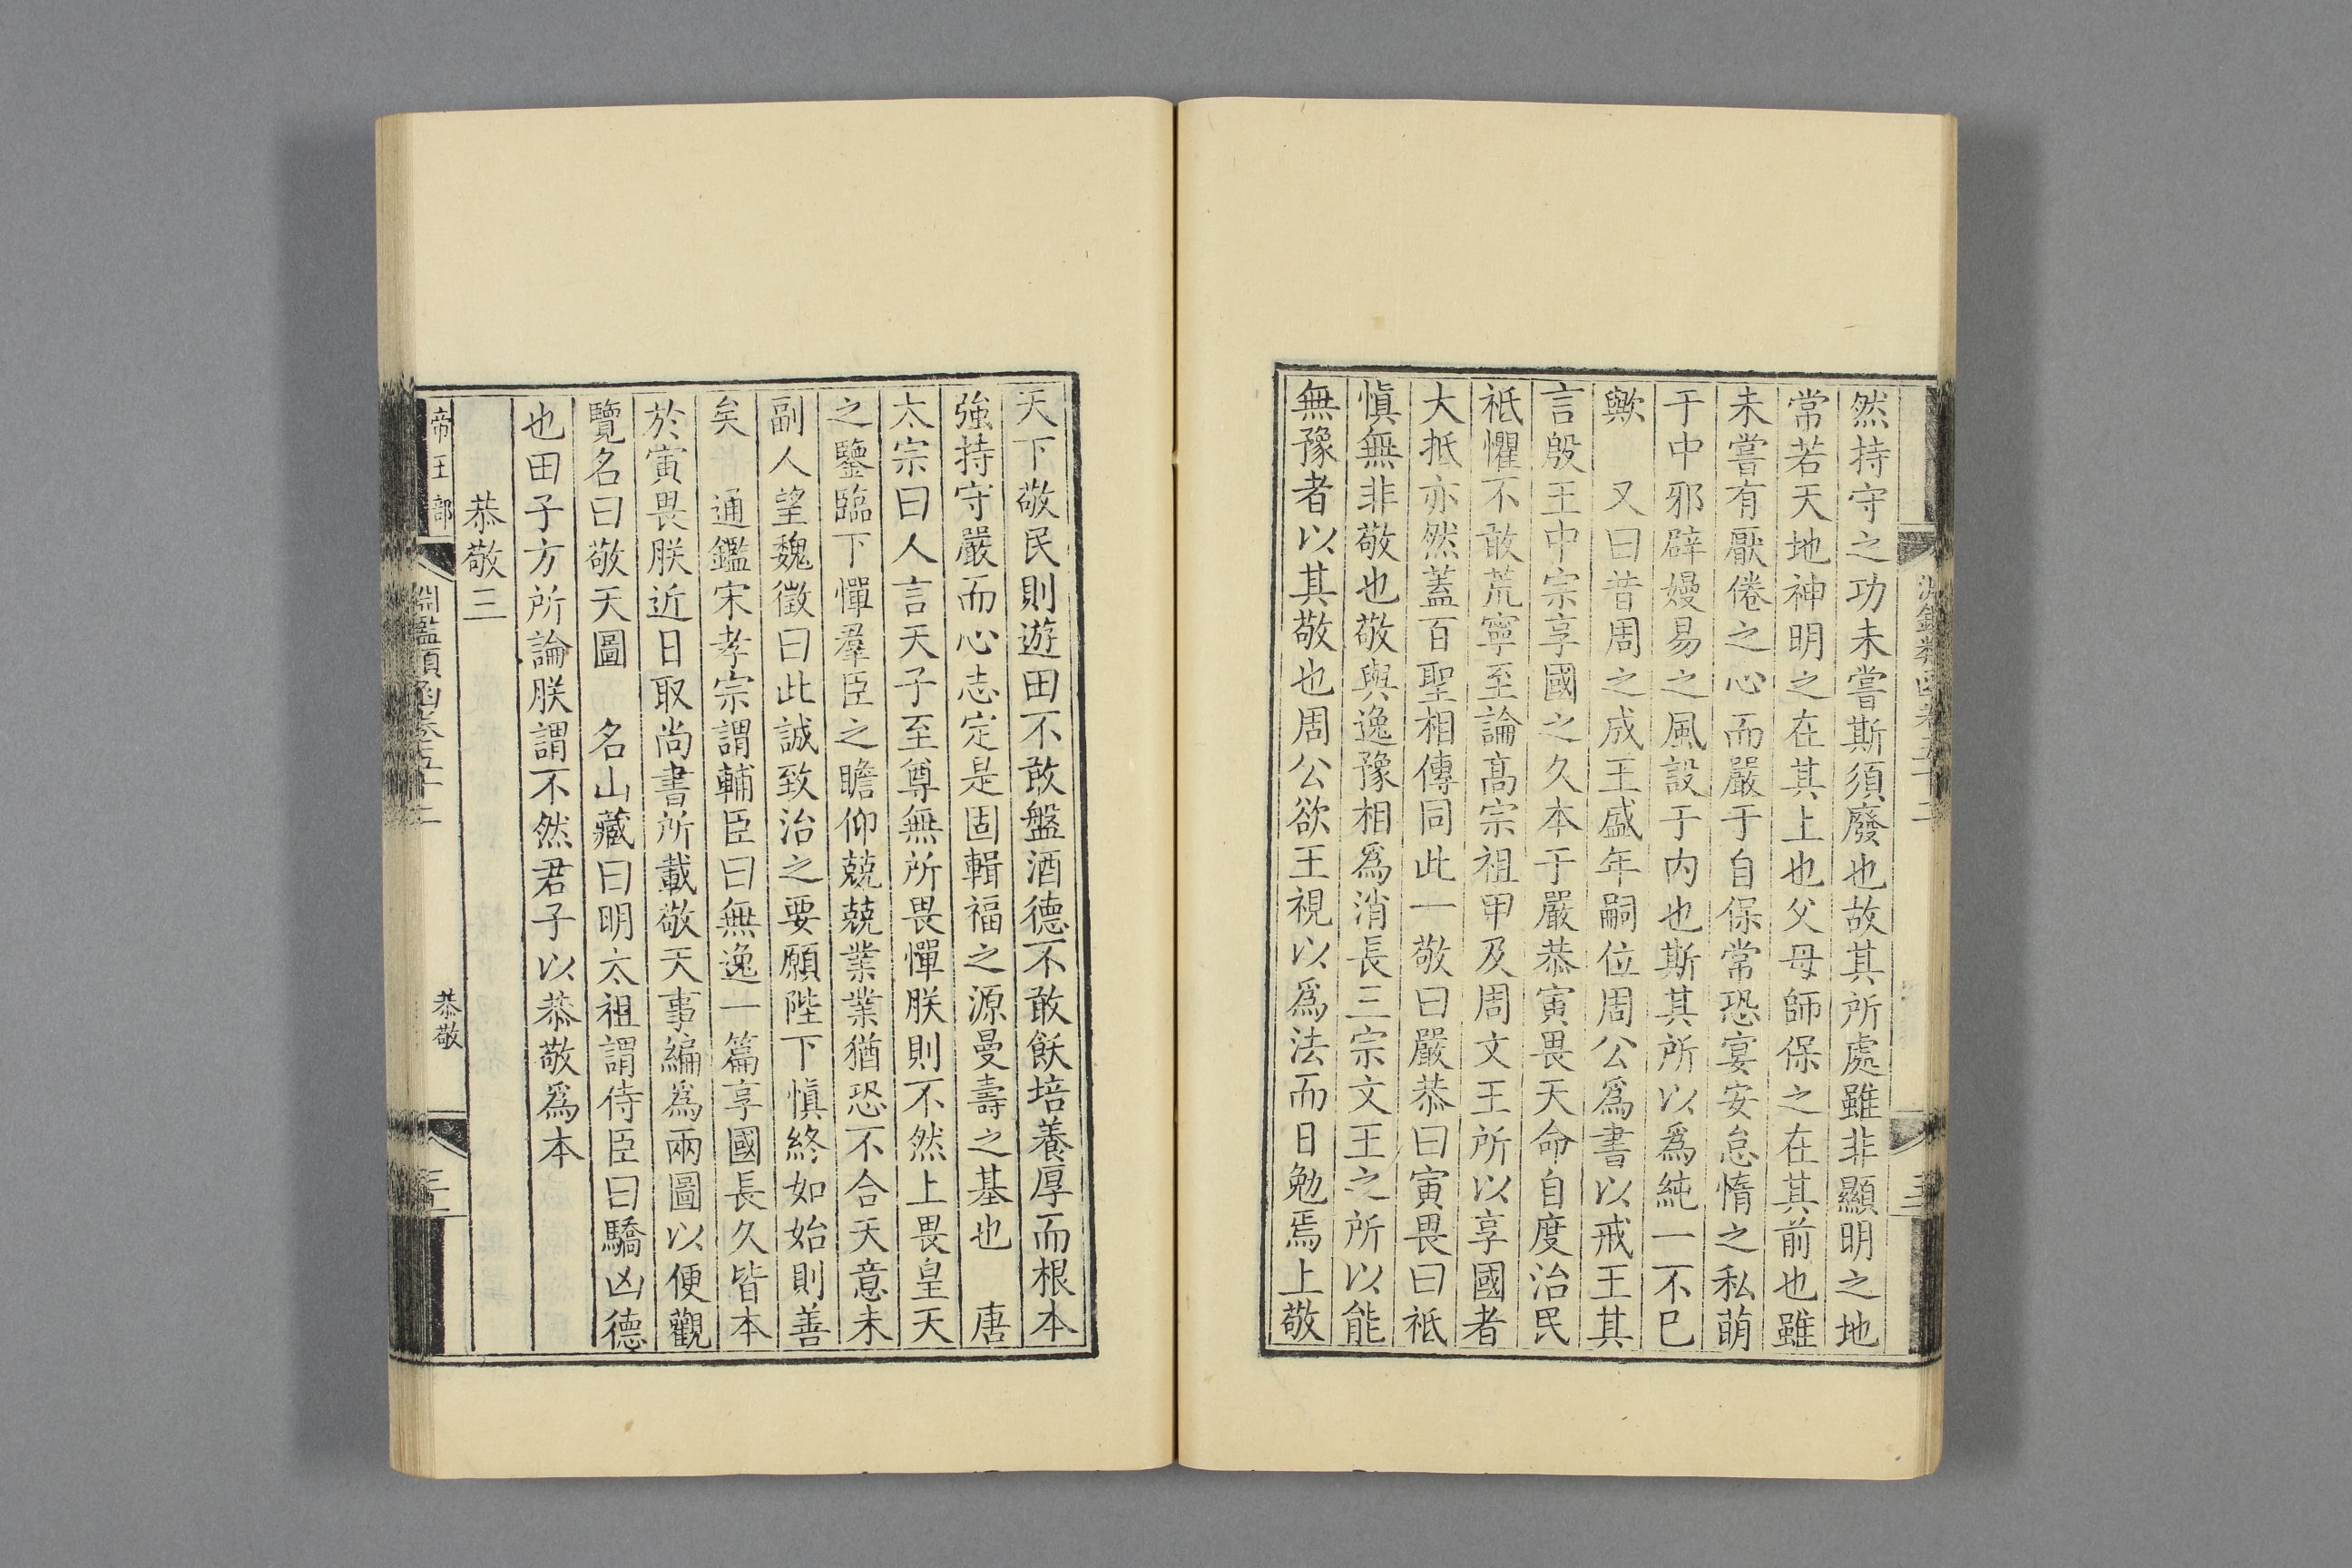 然持守之功未嘗斯須廢也故其所處雖非顯明之地
常若天地神明之在其上也父母師保之在其前也雖
未嘗有厭倦之心而嚴于自保常恐宴安怠惰之私萌
于中邪辟嫚易之風設于内也斯其所以爲純一不已
歟　又曰昔周之成王盛年嗣位周公爲書以戒王其
言殷王中宗享國之久本于嚴恭寅畏天命自度治民
祗懼不敢荒寧至論髙宗祖甲及周文王所以享國者
大抵亦然蓋百聖相傳同此一敬曰嚴恭曰寅畏曰祗
愼無非敬也敬與逸豫相爲消長三宗文王之所以能
無豫者以其敬也周公欲王視以爲法而日勉焉上敬
天下敬民則遊田不敢盤酒德不敢飫培養厚而根本
強持守嚴而心志定是固輯福之源曼壽之基也　唐
太宗曰人言天子至尊無所畏憚朕則不然上畏皇天
之鑒臨下憚羣臣之瞻仰兢兢業業猶恐不合天意未
副人望魏徵曰此誠致治之要願陛下愼終如始則善
矣　通鑑宋孝宗謂輔臣曰無逸一篇享國長久皆本
於寅畏朕近日取尚書所載敬天事編爲兩圖以便觀
覽名曰敬天圖　名山藏曰明太祖謂侍臣曰驕凶德
也田子方所論朕謂不然君子以恭敬爲本
恭敬三
帝王部
淵鑑類函卷五十二
恭敬